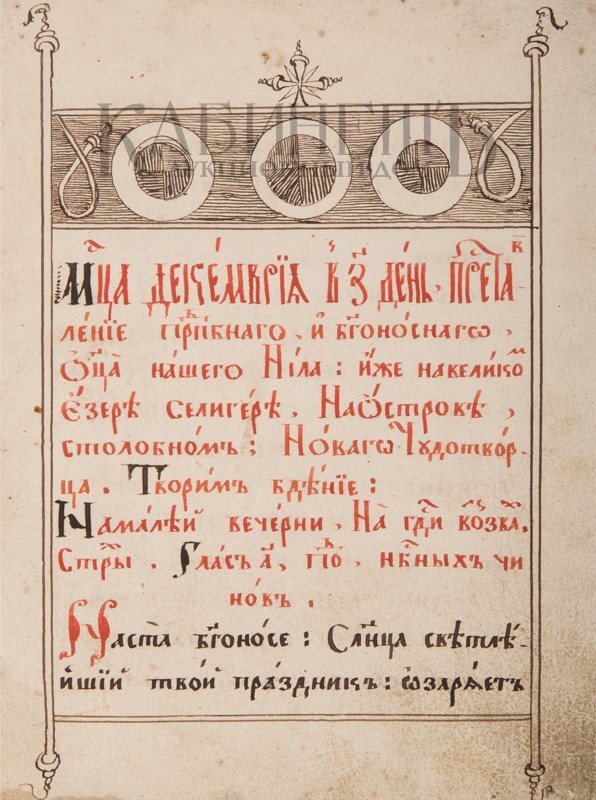 КАБИНЕТЪ
Мц҃а декемврїѧ в з҃ день, преста-
ленїе прпⷣбнаго, и бг҃оноснагѡ,
Ѻц҃а нашего Нїла: иже навеликоⷨ
Езерѣ селигерѣ, Наѻстровѣ,
столобномъ; Новагѡ Чудотвор-
ца. Творимъ бдѣнїе:
Намалѣй вечерни, На гдⷭ҇и воззваⷯ,
Стрⷯы, гласъ а҃, поⷣ, нбⷭ҇ныхъ чи
новъ.
Наста бг҃оносе: Сл҃нца свѣтлѣ-
йшїй твой праздникъ: ѡзарѧетъ